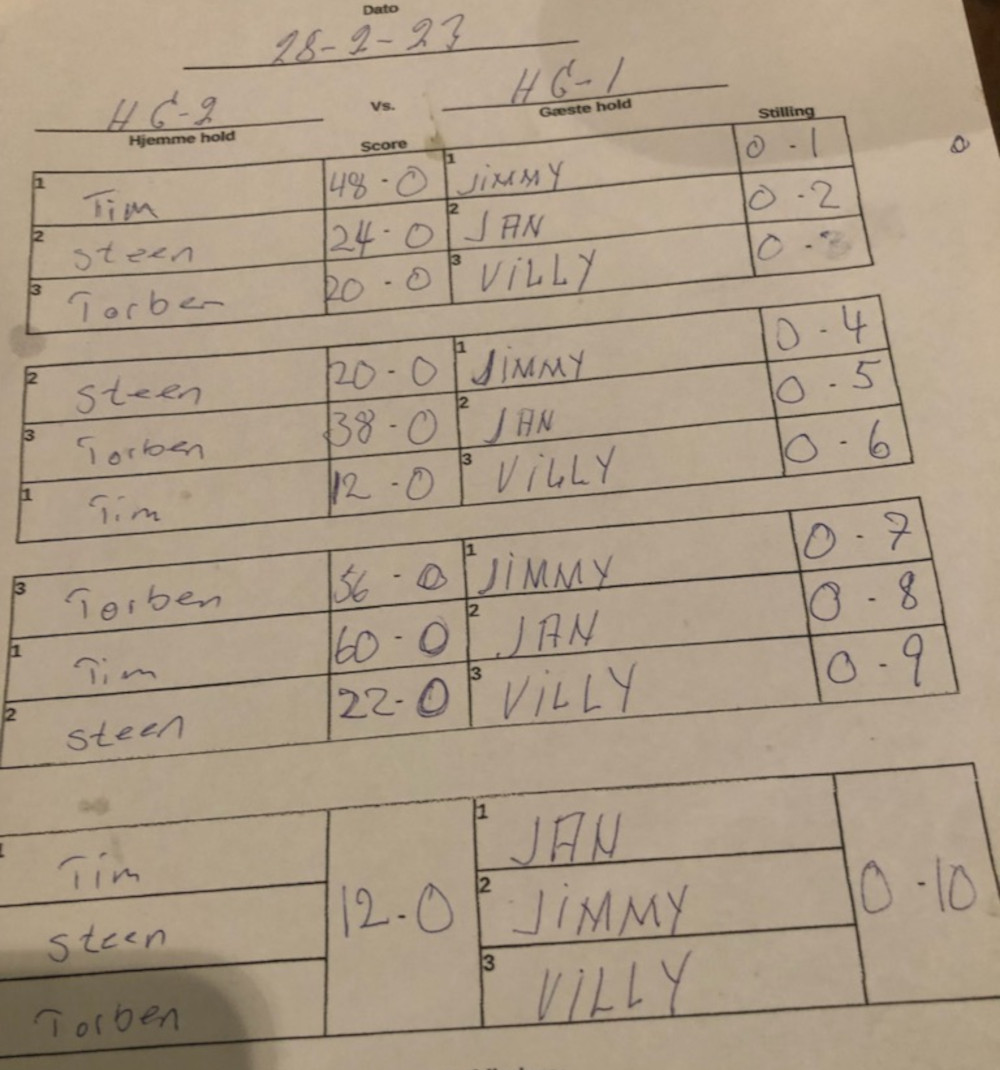 Dato
28-2-23
HG-2 Vs. HG-1
Hjemme hold Gæste hold
Score Stilling
1 Tim 48-0 1 JIMMY 0-1
2 steen 24-0 2 JAN 0-2
3 Torben 20-0 3 VILLY 0-3
2 steen 20-0 1 JIMMY 0-4
3 Torben 38-0 2 JAN 0-5
1 Tim 12-0 3 VILLY 0-6
3 Torben 56-0 1 JIMMY 0-7
1 Tim 60-0 2 JAN 0-8
2 steen 22-0 3 VILLY 0-9
1 Tim 1 JAN
steen 12-0 2 JIMMY 0-10
Torben 3 VILLY